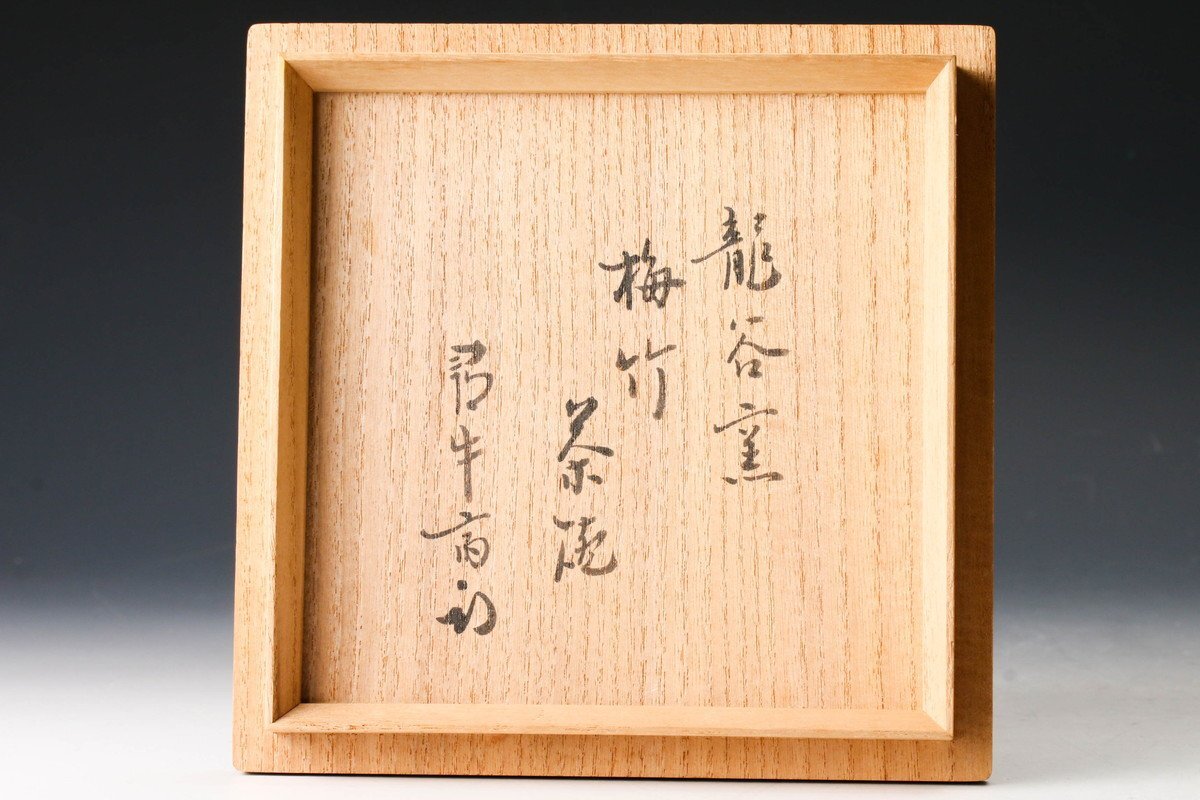 龍谷窯
梅竹
茶碗
尋牛斎